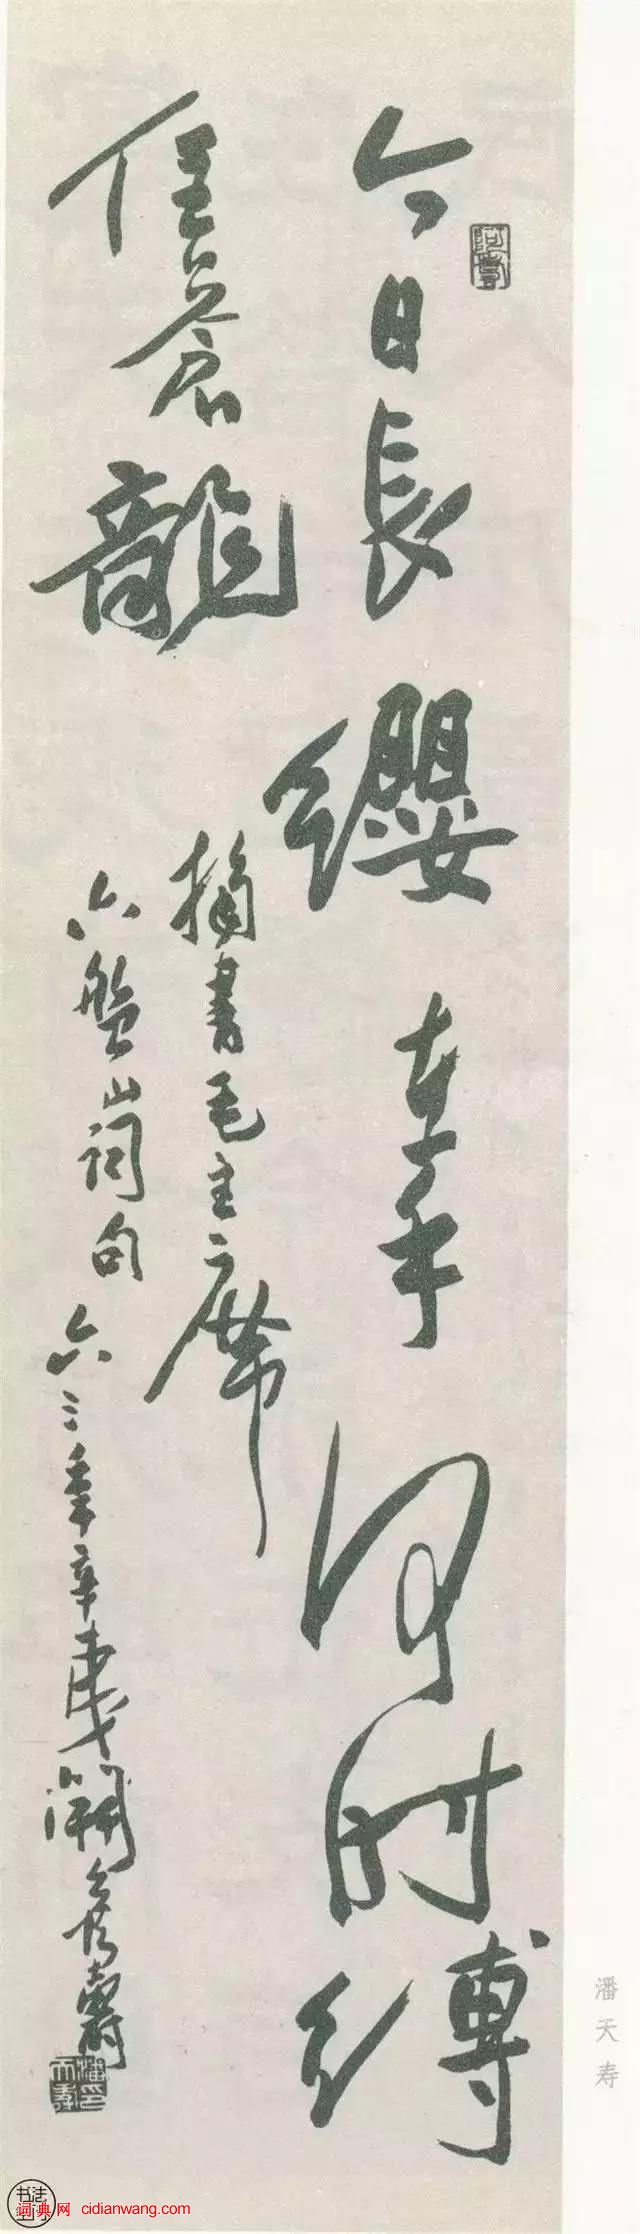 阿壽
今日長纓在手何时縛
住蒼龍
摘書毛主席
六盤山詞句 六三年
壽
潘天壽印
潘天寿
书法
词典网 cidianwang.com